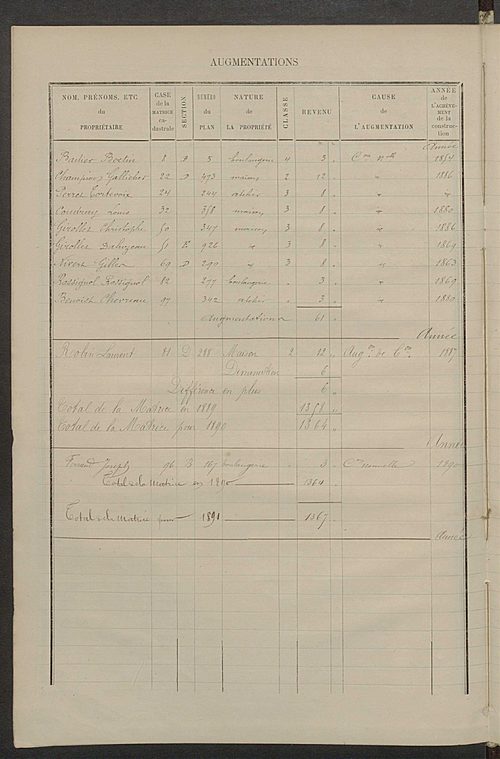 AUGMENTATIONS
NOM, PRÉNOMS, ETC. du PROPRIÉTAIRE
CASE de la MATRICE ca-dastrale
SECTION
NUMÉRO du PLAN
NATURE de LA PROPRIÉTÉ
CLASSE
REVENU
CAUSE de L'AUGMENTATION
ANNÉE de L'ACHÈVE-MENT de la construc-tion
Année
8 D 5 boulangerie 4 3 1884
Champion Gallicher 22 D 493 maison 2 12 " 1886
Perret 24 244 atelier 3 8 " "
Louis 32 318 maison 3 8 " 1880
Girollet Christophe 50 347 maison 3 8 " 1886
Girollet 51 926 " 3 8 " 1869
Gillet 69 D 290 " 3 8 " 1863
Rossignol Rossignol 82 297 boulangerie 3 " 1869
Benoist 97 342 atelier 3 " 1880
Augmentations 61
Année
Robin Laurent 81 D 288 Maison 2 12 Aug.on de C.on 1887
Diminution 6
Différence en plus 6
Total de la Matrice en 1889 1358
Total de la Matrice pour 1890 1364
Année
Joseph 96 B 167 boulangerie 3 C nouvelle 1890
Total de la matrice en 1364
Total de la matrice pour 1891 1367
Année